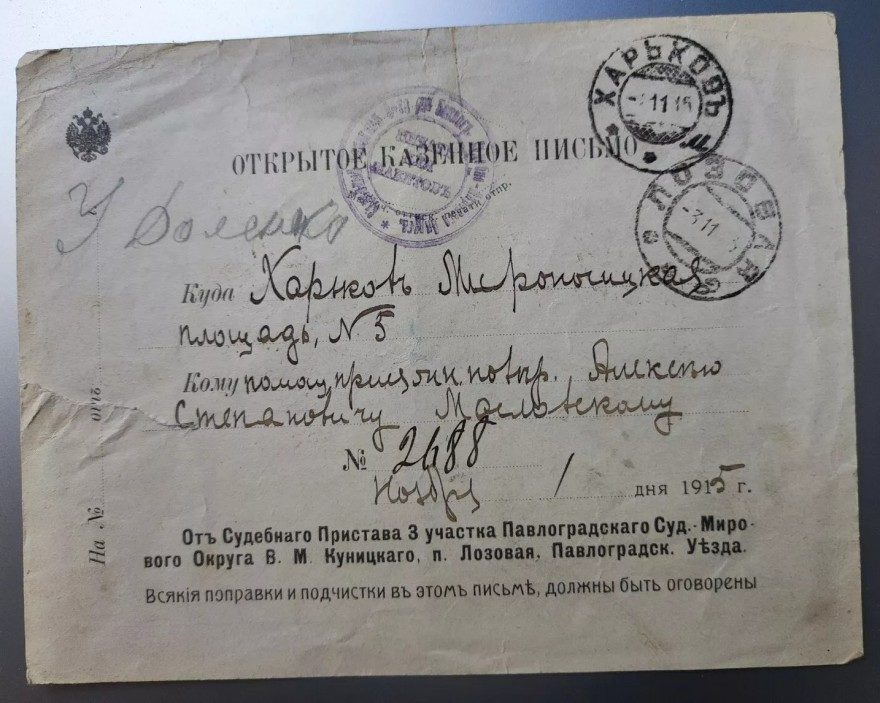 ХАРЬКОВЪ
11 15
ОТКРЫТОЕ КАЗЕННОЕ ПИСЬМО
ЛОЗОВАЯ
-3 11
У Доленко
Куда Харьковъ Мироносицкая
площадь, N 5
Кому помощ. присяжн. повѣр. Алексѣю
Степановичу Масловскому
№ 2688
Ноября 1 дня 1915 г.
На № отъ
Отъ Судебнаго Пристава 3 участка Павлоградскаго Суд.-Миро-
вого Округа В. М. Куницкаго, п. Лозовая, Павлоградск. Уѣзда.
Всякія поправки и подчистки въ этомъ письмѣ, должны быть оговорены